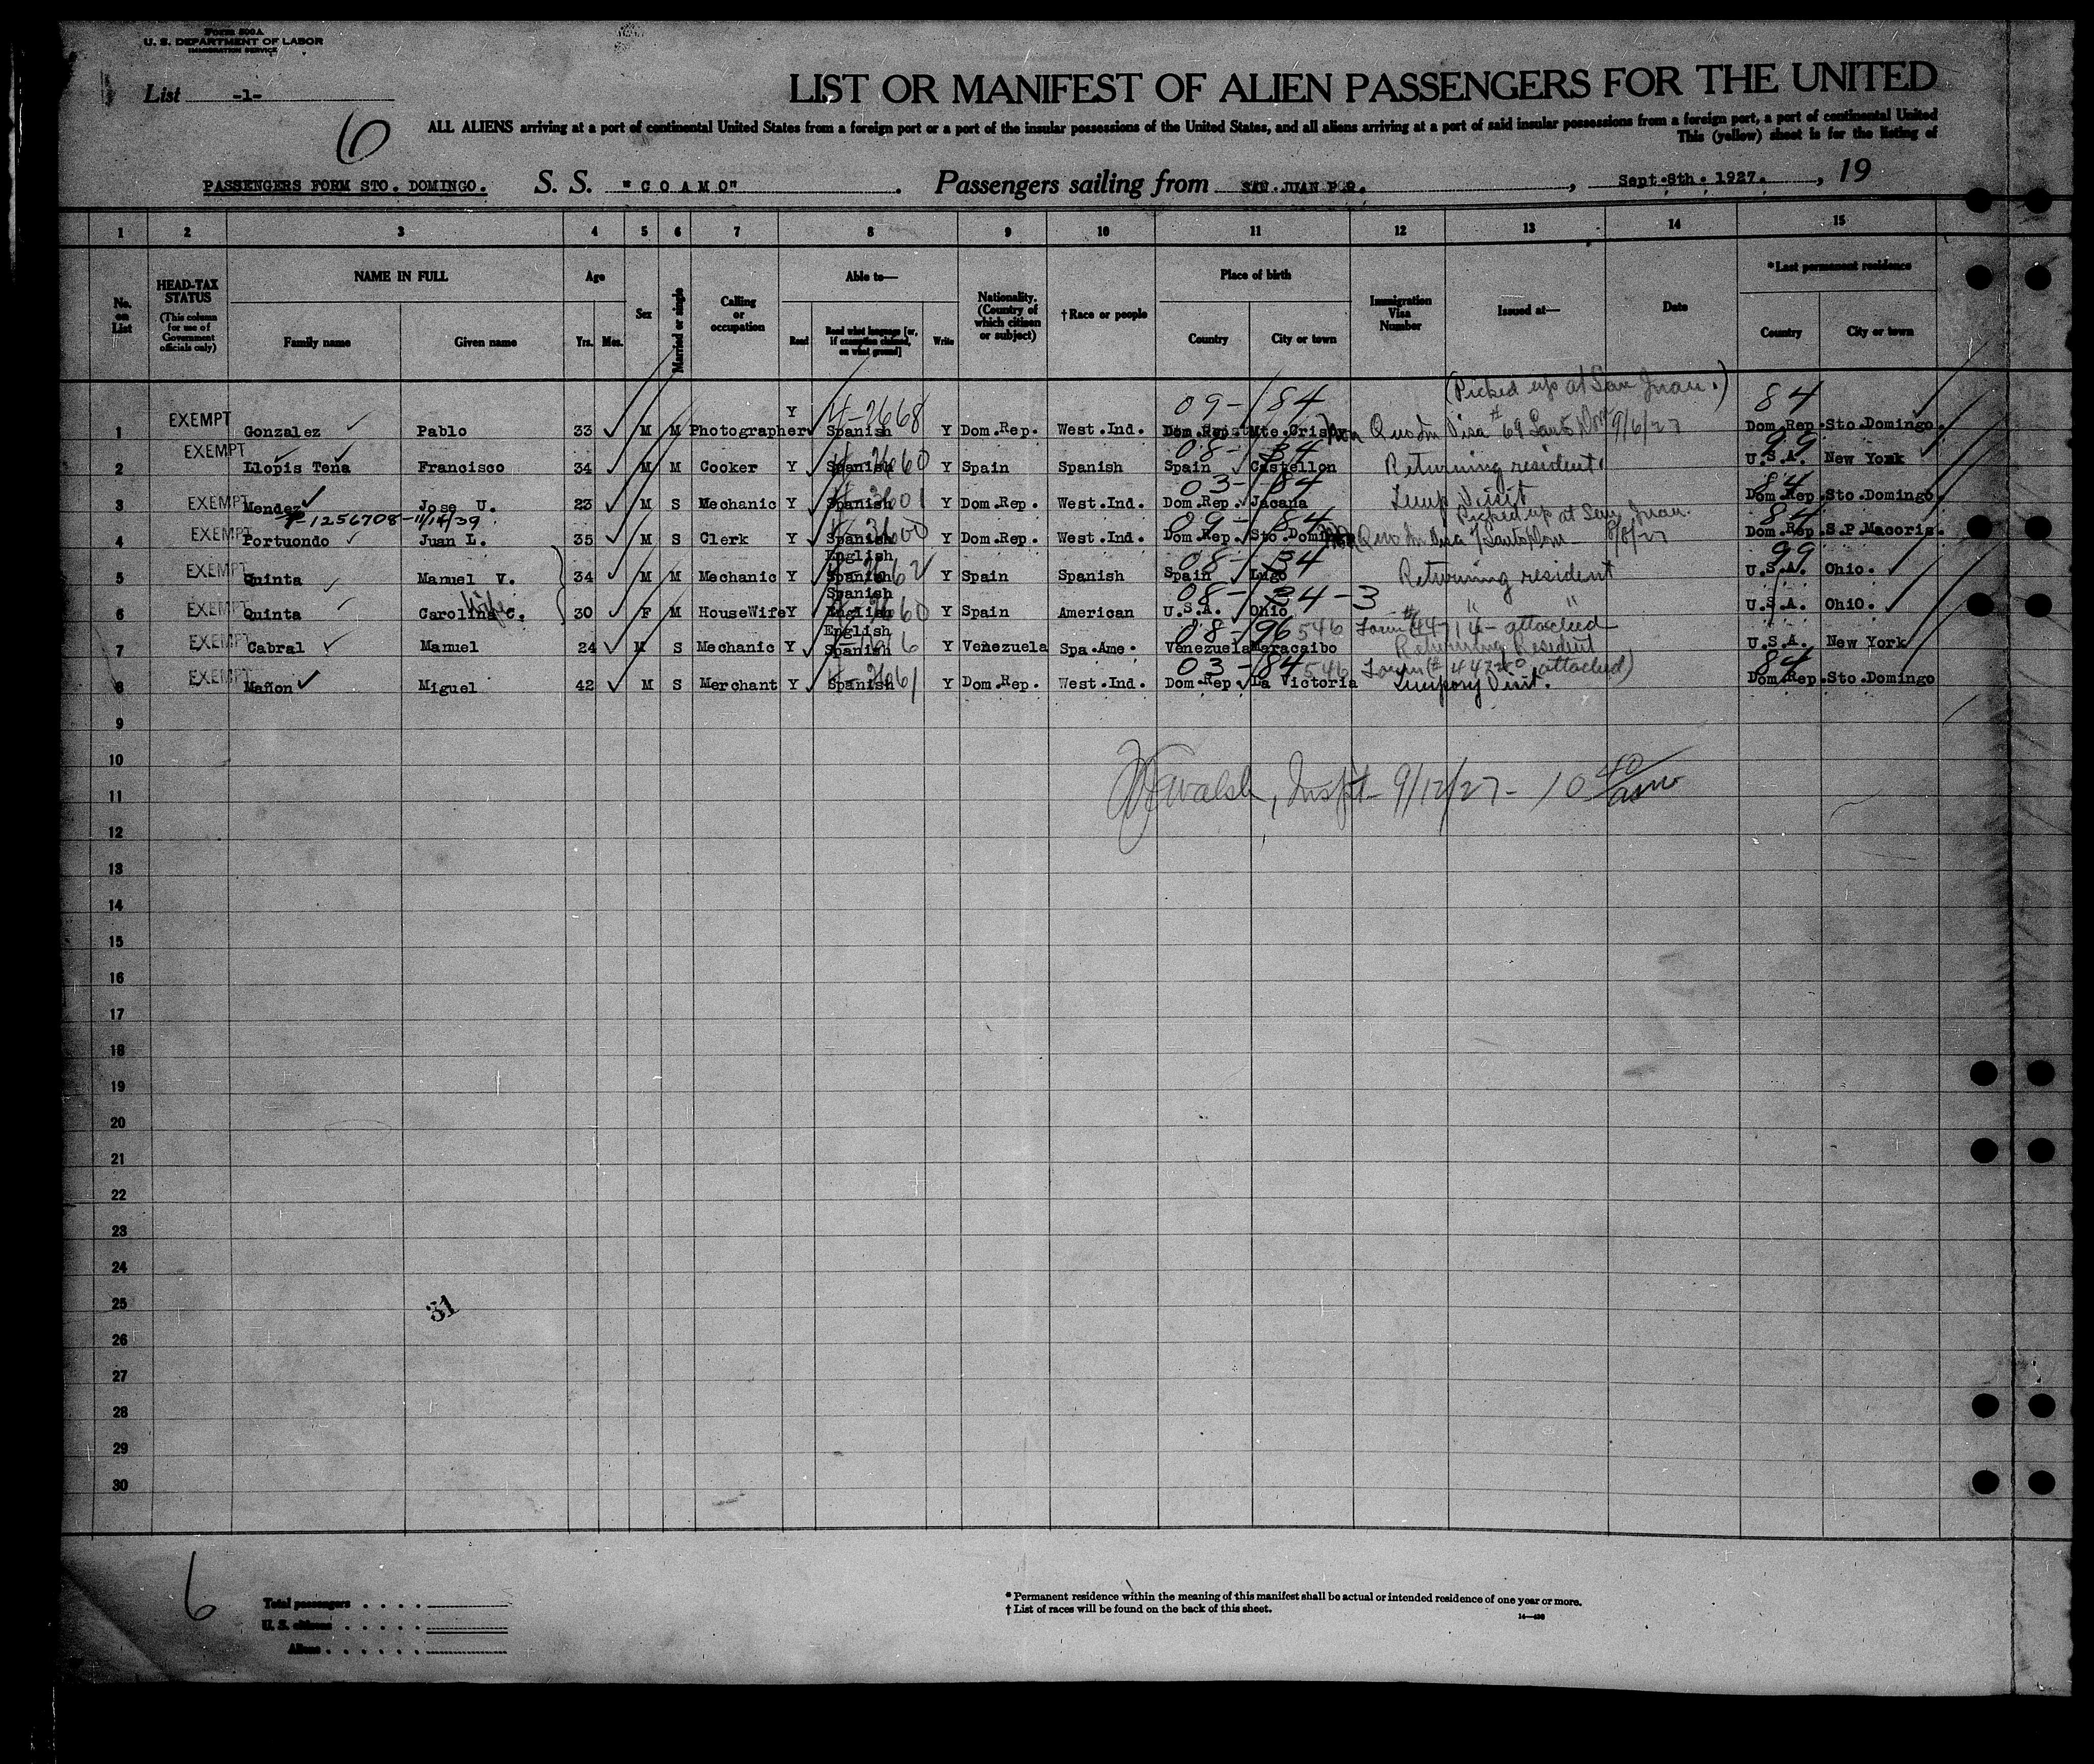 Form 500A
U. S. DEPARTMENT OF LABOR
IMMIGRATION SERVICE
List -1-
LIST OR MANIFEST OF ALIEN PASSENGERS FOR THE UNITED
6
ALL ALIENS arriving at a port of continental United States from a foreign port or a port of the insular possessions of the United States, and all aliens arriving at a port of said insular possessions from a foreign port, a port of continental United
This (yellow) sheet is for the listing of
PASSENGERS FORM STO. DOMINGO. S. S. "COAMO" . Passengers sailing from SAN JUAN P.R. , Sept.8th. 1927. , 19
1 2 3 4 5 6 7 8 9 10 11 12 13 14 15
No. on List
HEAD-TAX STATUS (This column for use of Government officials only)
NAME IN FULL
Family name Given name
Age
Yrs. Mos.
Sex
Married or single
Calling or occupation
Able to—
Read Read what language [or, if exemption claimed, on what ground] Write
Nationality. (Country of which citizen or subject)
† Race or people
Place of birth
Country City or town
Immigration Visa Number
Issued at—
Date
* Last permanent residence
Country City or town
(Picked up at San Juan.)
09- 84 84
1 EXEMPT Gonzalez Pablo 33 M M Photographer Y Spanish Y Dom.Rep. West.Ind. Dom.Rep. Mte.Cristy Non Quota Visa #69 9/6/27 Dom.Rep. Sto.Domingo.
08- 34 99
2 EXEMPT Llopis Tena Francisco 34 M M Cooker Y Spanish Y Spain Spanish Spain Castellon Returning resident. U.S.A. New York
03- 84 84
3 EXEMPT Mendez Jose U. 23 M S Mechanic Y Spanish Y Dom.Rep. West.Ind. Dom.Rep. Jacana Temp Visit Dom.Rep. Sto.Domingo.
T-1256708-11/14/39
Picked up at San Juan.
09- 84 84
4 EXEMPT Portuondo Juan L. 35 M S Clerk Y Spanish Y Dom.Rep. West.Ind. Dom.Rep. Sto Domingo Dom.Rep. S.P.Macoris.
08- 34 99
5 EXEMPT Quinta Manuel V. 34 M M Mechanic Y English Spanish Y Spain Spanish Spain Lugo Returning resident U.S.A. Ohio.
08- 34-3
6 EXEMPT Quinta Carolina C. Wife 30 F M HouseWife Y Spanish English Y Spain American U.S.A. Ohio " " U.S.A. Ohio.
08- 96 546 attached
7 EXEMPT Cabral Manuel 24 M S Mechanic Y English Spanish Y Venezuela Spa.Ame. Venezuela Maracaibo Returning Resident U.S.A. New York
03- 84 546 attached) 84
8 EXEMPT Mañon Miguel 42 M S Merchant Y Spanish Y Dom.Rep. West.Ind. Dom.Rep. La Victoria Visit. Dom.Rep. Sto.Domingo
9
10
Walsh, Inspt- 9/12/27- 10 40/am
11
12
13
14
15
16
17
18
19
20
21
22
23
24
25
31
26
27
28
29
30
6
Total passengers . . . .
U. S. citizens . . . . .
Aliens . . . . . .
* Permanent residence within the meaning of this manifest shall be actual or intended residence of one year or more.
† List of races will be found on the back of this sheet.